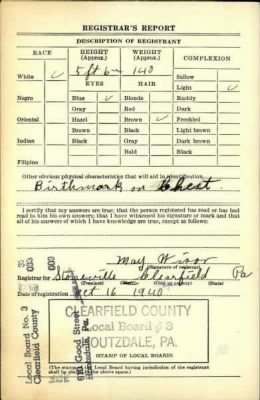 REGISTRAR'S REPORT
DESCRIPTION OF REGISTRANT
RACE HEIGHT (Approx.) WEIGHT (Approx.) COMPLEXION
White ✓ 5 ft 6 140 Sallow
EYES HAIR Light ✓
Negro Blue ✓ Blonde Ruddy
Gray Red Dark
Oriental Hazel Brown ✓ Freckled
Brown Black Light brown
Indian Black Gray Dark brown
Bald Black
Filipino
Other obvious physical characteristics that will aid in identification
Birthmark on Chest.
I certify that my answers are true; that the person registered has read or has had
read to him his own answers; that I have witnessed his signature or mark and that
all of his answers of which I have knowledge are true, except as follows:
May
(Signature of registrar)
Registrar for Clearfield Pa
(Precinct) (City or county) (State)
Date of registration Oct 16 1940
Local Board No. 3
Clearfield County
033
003
610 Good Street
Houtzdale, Pa.
CLEARFIELD COUNTY
Local Board # 3
HOUTZDALE, PA.
(STAMP OF LOCAL BOARD)
(The stamp of the Local Board having jurisdiction of the registrant
shall be placed in the above space.)